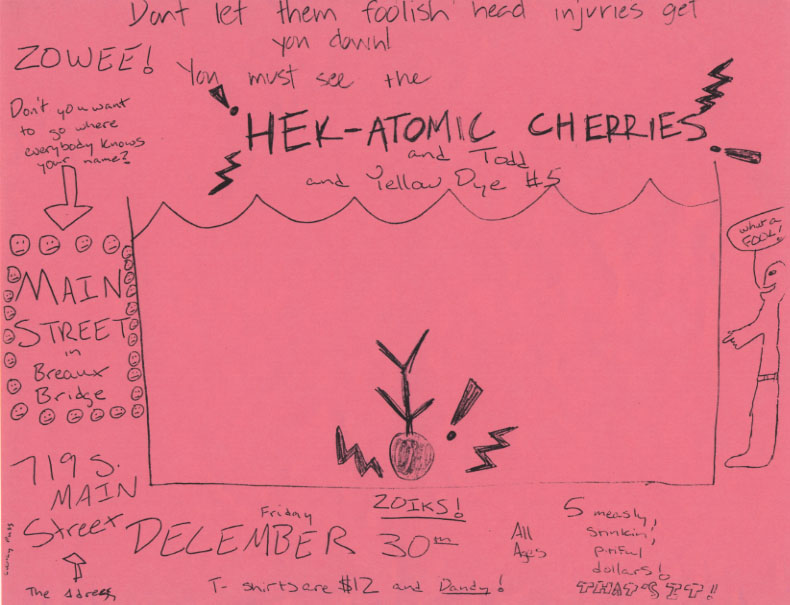 Dont let them foolish head injuries get
you down!
ZOWEE!
You must see the
HEK-ATOMIC CHERRIES
and Todd
and Yellow Dye #5
Don't you want
to go where
everybody knows
your name?
what a
FOOL!
MAIN
STREET
in
Breaux
Bridge
719 S.
MAIN
Street
The Adress
Friday
DECEMBER 30
ZOIKS!
All
Ages
5 measly,
stinkin',
pitiful
dollars!
THAT'S IT!!
T-shirts are $12 and Dandy!